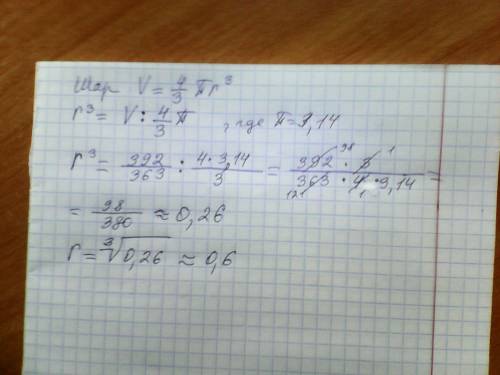 Шар V = 4/3 πr³
r³ = V : 4/3 π , где π = 3,14
r³ = 392/363 : 4·3,14/3 = 392 98 · 3 1 / 363 121 · 4 1 · 3,14 =
= 98/380 ≈ 0,26
r = ³√0,26 ≈ 0,6